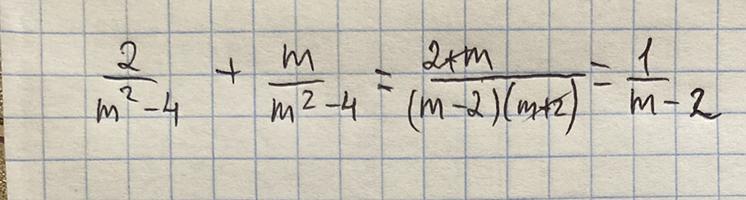 2/(m²-4) + m/(m²-4) = (2+m)/((m-2)(m+2)) = 1/(m-2)